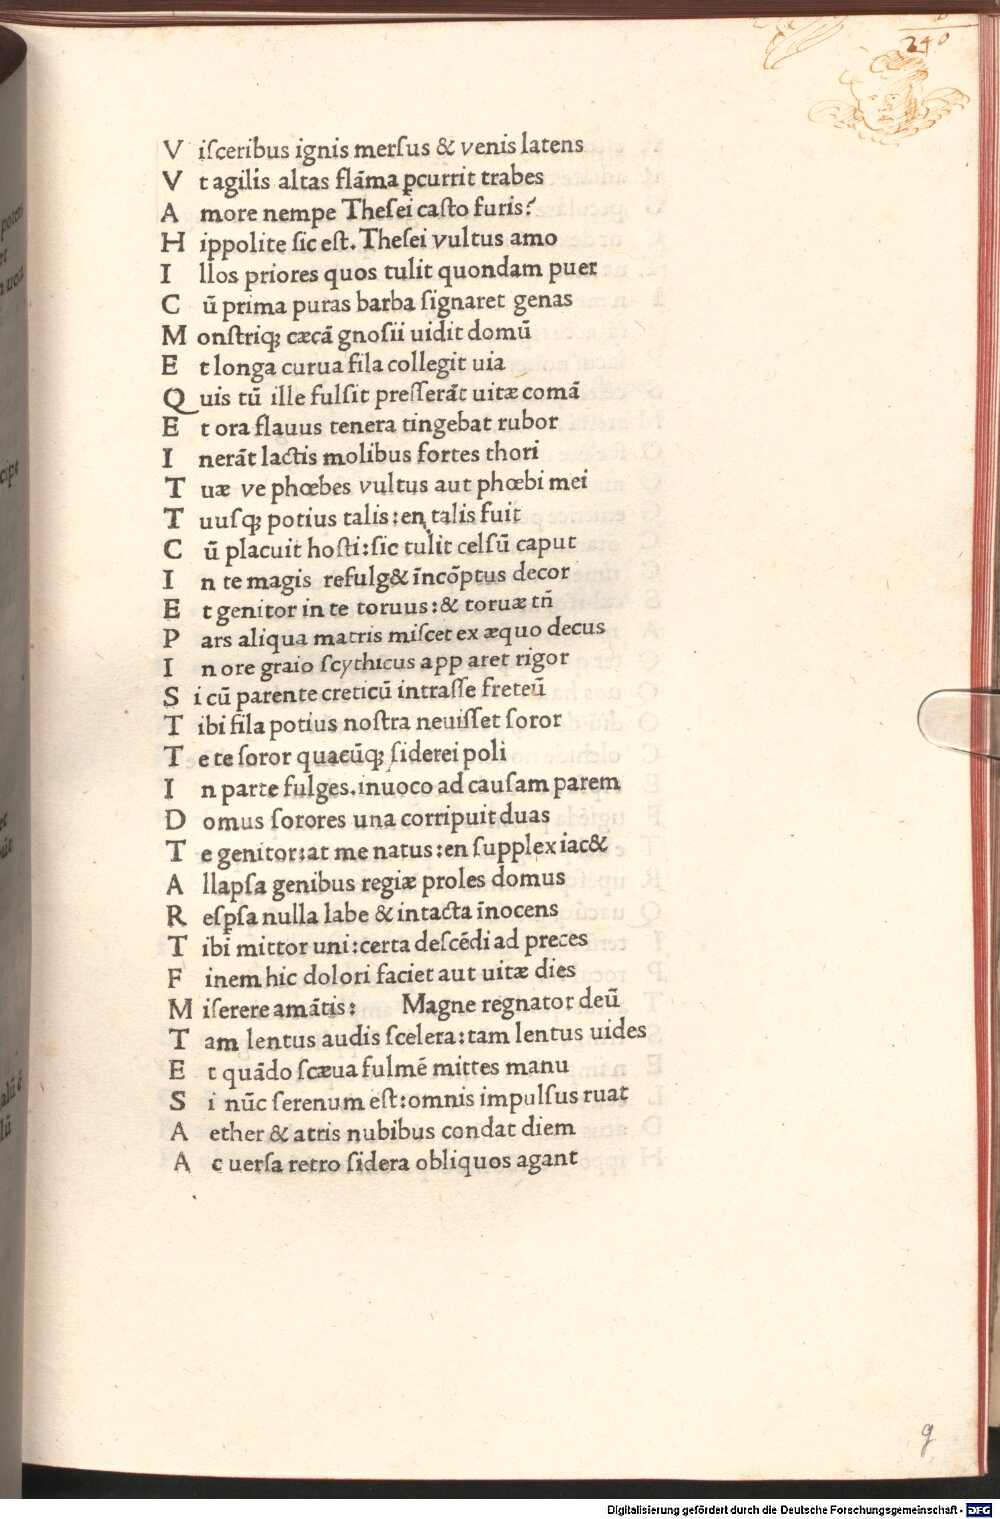 240
V iſceribus ignis merſus & venis latens
V t agilis altas flāma ꝑcurrit trabes
A more nempe Theſei caſto furis?
H ippolite ſic eſt. Theſei vultus amo
I llos priores quos tulit quondam puer
C ū prima puras barba ſignaret genas
M onſtriq; cæcā gnoſii uidit domū
E t longa curua fila collegit uia
Q uis tū ille fulſit preſſerāt uitæ comā
E t ora flauus tenera tingebat rubor
I nerāt lactis molibus fortes thori
T uæ ve phœbes vultus aut phœbi mei
T uuſq; potius talis: en talis fuit
C ū placuit hoſti: ſic tulit celſū caput
I n te magis refulg& īncōptus decor
E t genitor in te toruus: & toruæ tn̄
P ars aliqua matris miſcet ex æquo decus
I n ore graio ſcythicus app aret rigor
S i cū parente creticū intraſſe freteū
T ibi fila potius noſtra neuiſſet ſoror
T e te ſoror quacūq; ſiderei poli
I n parte fulges. inuoco ad cauſam parem
D omus ſorores una corripuit duas
T e genitor: at me natus: en ſupplex iac&
A llapſa genibus regiæ proles domus
R eſpſa nulla labe & intacta īnocens
T ibi mittor uni: certa deſcēdi ad preces
F inem hic dolori faciet aut uitæ dies
M iſerere amātis: Magne regnator deū
T am lentus audis ſcelera: tam lentus uides
E t quādo ſcæua fulmē mittes manu
S i nūc ſerenum eſt: omnis impulſus ruat
A ether & atris nubibus condat diem
A c uerſa retro ſidera obliquos agant
g
Digitalisierung gefördert durch die Deutsche Forschungsgemeinschaft - DFG